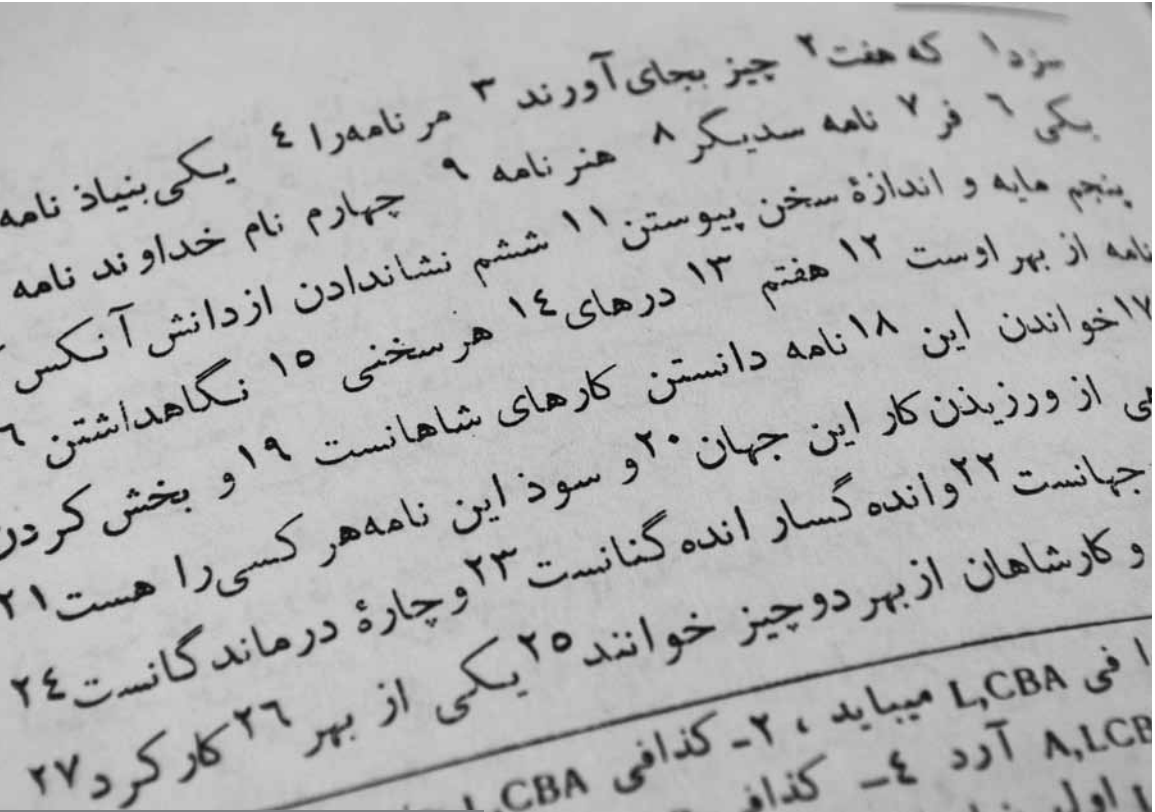 سزد۱ که هفت۲ چیز بجای آورند۳ مر نامه را۴ یکی بنیاذ نامه
یکی۶ فر۷ نامه سدیگر۸ هنر نامه۹ چهارم نام خداوند نامه
پنجم مایه و اندازهٔ سخن پیوستن۱۱ ششم نشاندادن از دانش آنکس
نامه از بهر اوست۱۲ هفتم۱۳ درهای۱۴ هر سخنی۱۵ نگاهداشتن۶
۱۷ خواندن این۱۸ نامه دانستن کارهای شاهانست۱۹ و بخش کردن
از ورزیذن کار این جهان۲۰ و سوذ این نامه هر کسی را هست۲۱
جهانست۲۲ وانده گسار انده گنانست۲۳ و چارهٔ درماندگانست۲۴
و کار شاهان از بهر دو چیز خوانند۲۵ یکی از بهر۲۶ کار کرد۲۷
ا فی L,CBA میباید ، ۲- کذافی CBA
A,LCB آرد ٤- کذافی